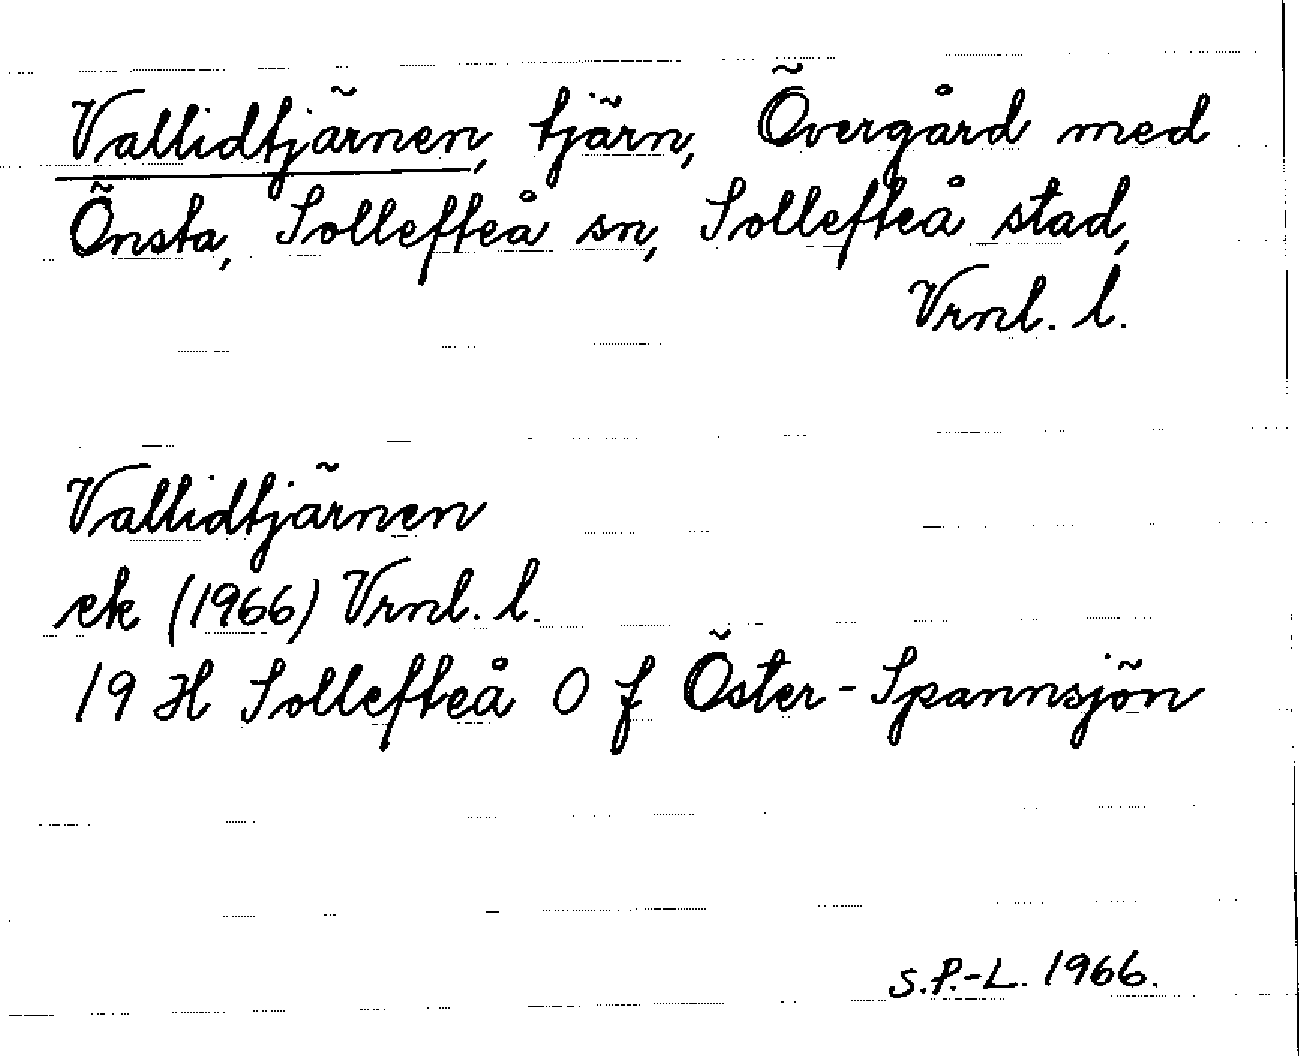 Vallidtjärnen, tjärn, Övergård med
Önsta, Sollefteå sn, Sollefteå stad,
Vrnl. l.
Vallidtjärnen
ek (1966) Vrnl. l.
19 H Sollefteå O f Öster-Spannsjön
S.P.-L. 1966.